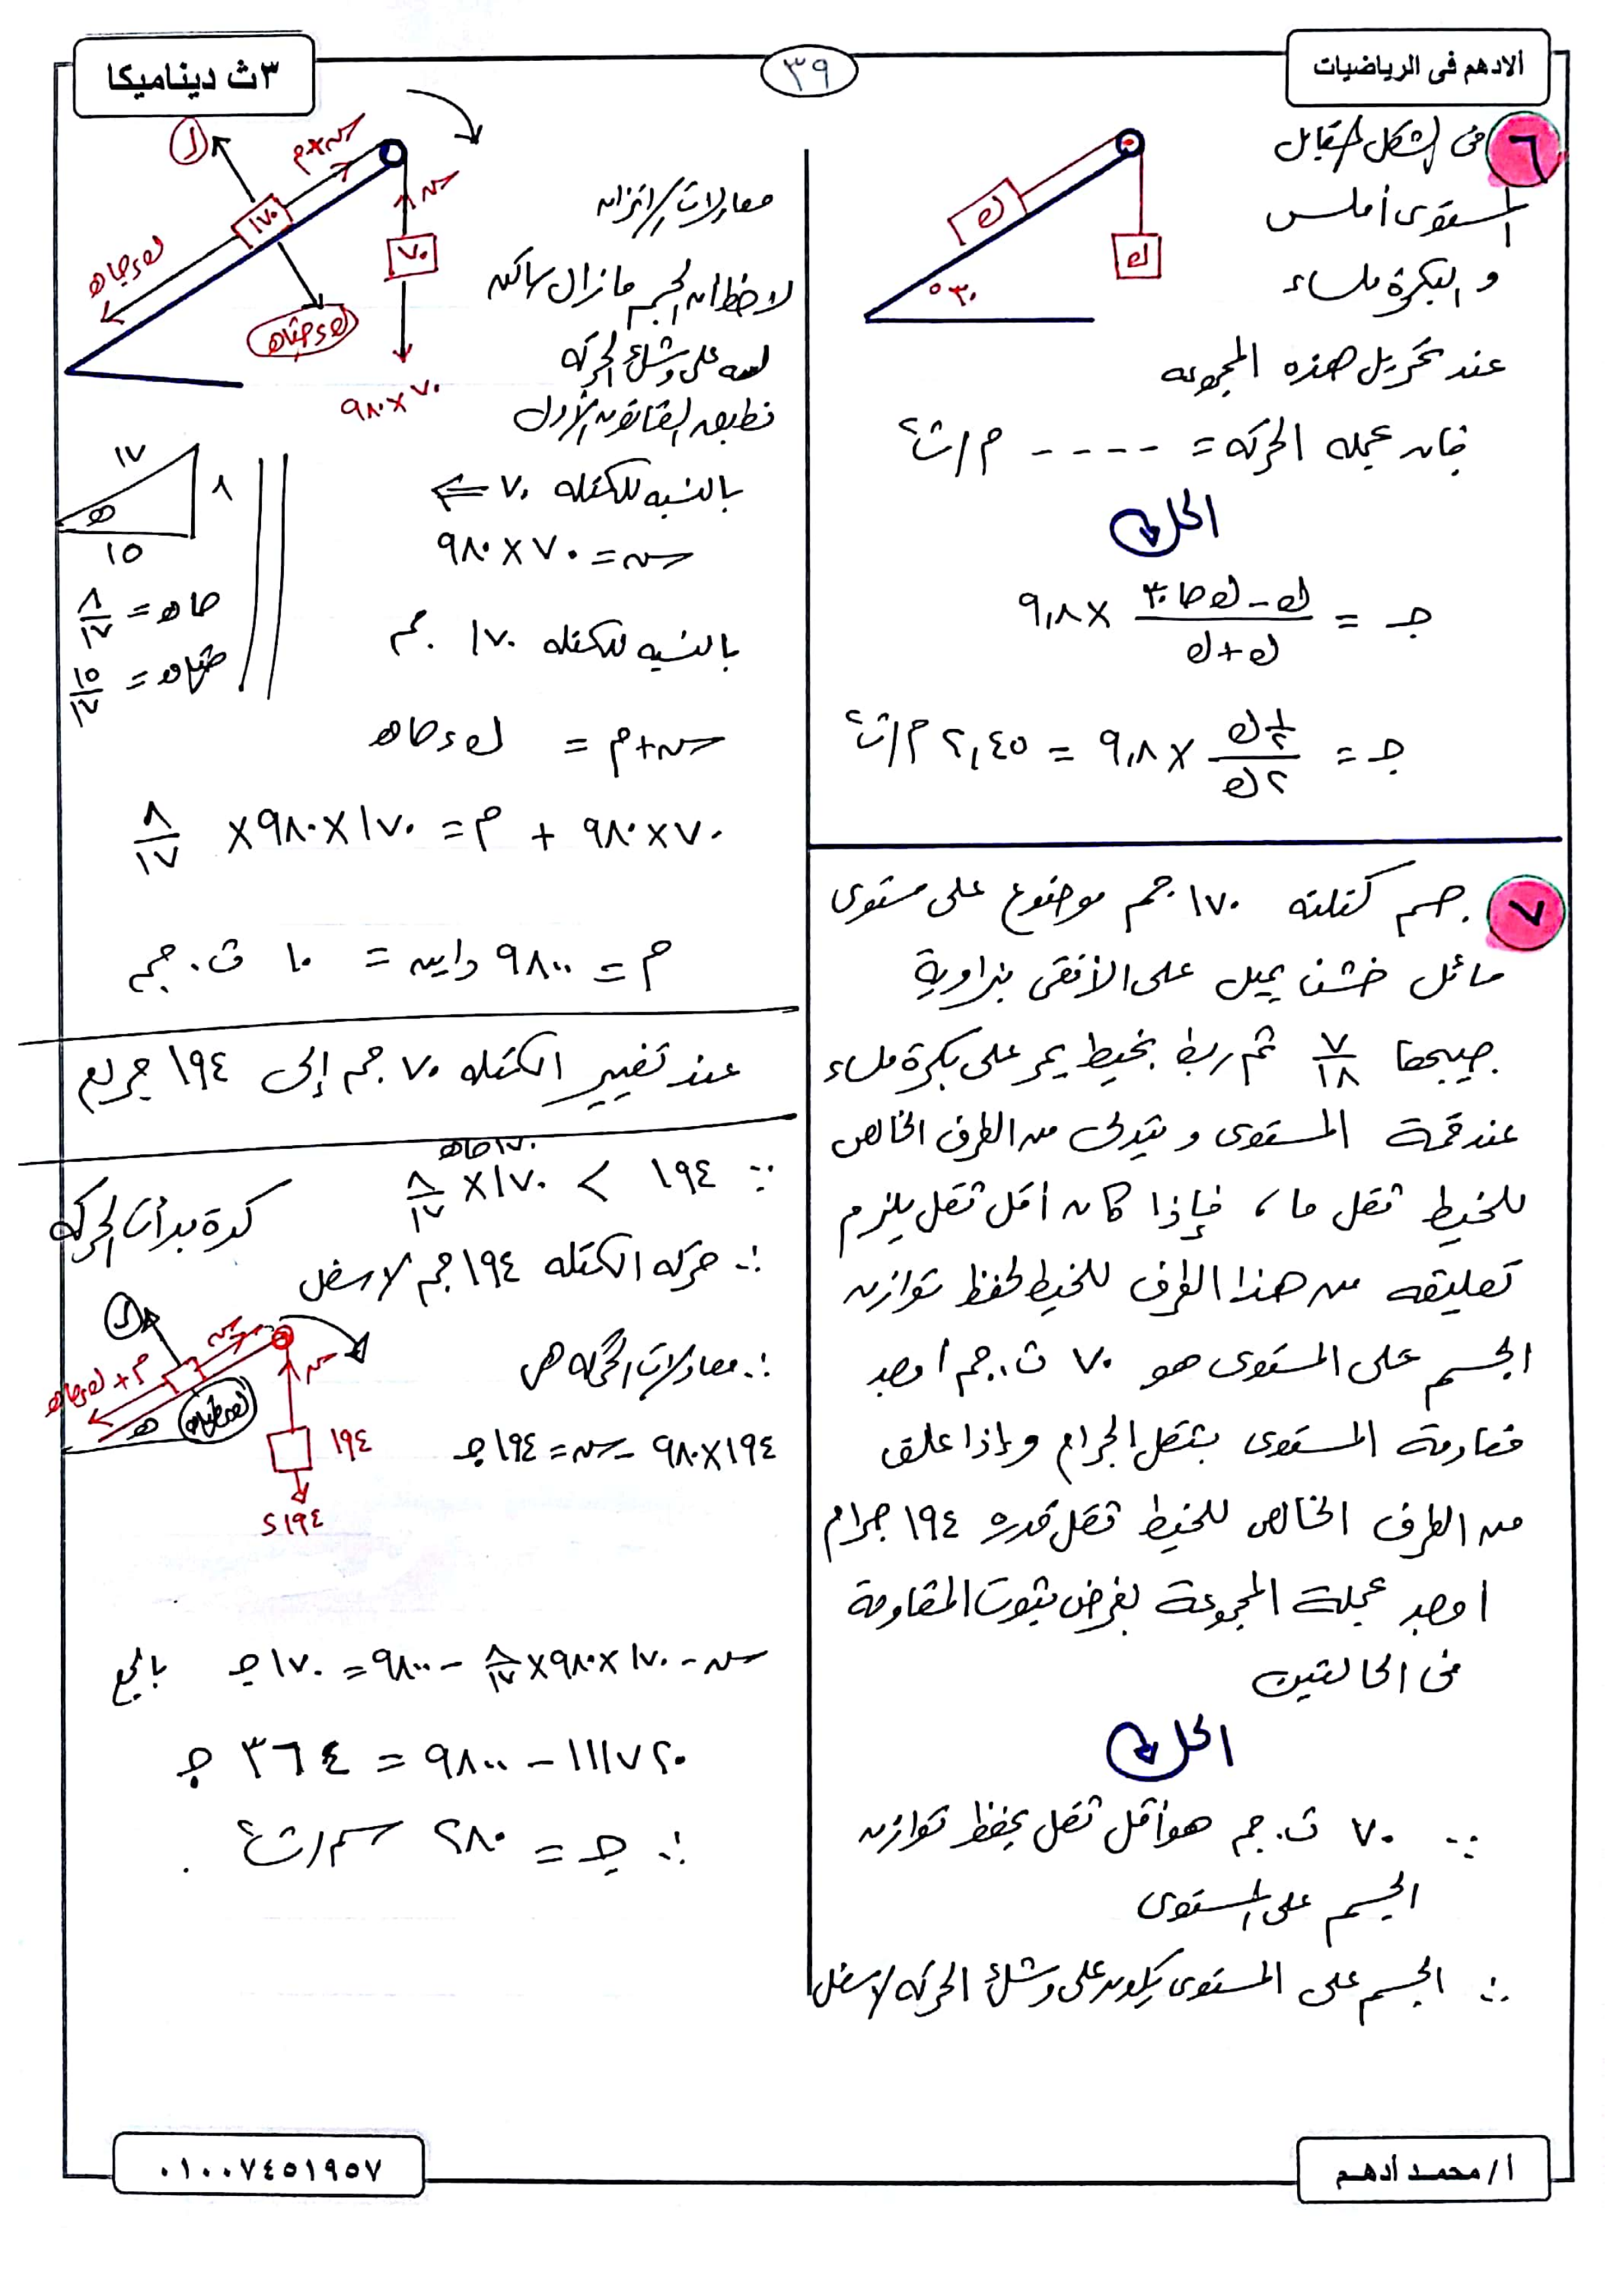 الادهم فى الرياضيات
٣٩
٣ث ديناميكا
٦ فى الشكل المقابل
المستوى أملس
و البكرة ملساء
عند تحريك هذه المجموعة
فإن عجلة الحركة = ---- م/ث٢
ك
ك
٣٠°
الحل
جـ = (ك - ك حا ٣٠)/(ك + ك) × ٩,٨
جـ = (١/٢ ك)/(٢ ك) × ٩,٨ = ٢,٤٥ م/ث٢
٧ جسم كتلته ١٧٠ جم موضوع على مستوى
مائل خشن يميل على الأفقى بزاوية
جيبها ٧/١٨ ثم ربط بخيط يمر على بكرة ملساء
عند قمة المستوى و يتدلى من الطرف الخالص
للخيط ثقل ما، فإذا كان أقل ثقل يلزم
تعليقه من هذا الطرف للخيط لحفظ توازن
الجسم على المستوى هو ٧٠ ث.جم أوجد
مقاومة المستوى بثقل الجرام وإذا علق
من الطرف الخالص للخيط ثقل قدره ١٩٤ جرام
اوجد عجلة المجموعة بفرض ثبوت المقاومة
فى الحالتين
الحل
∵ ٧٠ ث.جم هو أقل ثقل يحفظ توازن
الجسم على المستوى
∴ الجسم على المستوى يكون على وشك الحركة لاسفل
ر
م+سہ
١٧٠
سہ
٧٠
ك ء حاھ
ك ء حتاھ
٩٨٠×٧٠
معادلات الاتزان
لاحظ أن الجسم مازال ساكن
لكنه على وشك الحركة
نطبق القانون الأول
بالنسبه للكتله ٧٠ ⇐
سہ = ٧٠ × ٩٨٠
بالنسبه للكتله ١٧٠ جم
سہ + م = ك ء حاھ
٧٠×٩٨٠ + م = ١٧٠×٩٨٠× ٨/١٧
م = ٩٨٠٠ داين = ١٠ ث.جم
١٧
٨
ھ
١٥
حاھ = ٨/١٧
حتاھ = ١٥/١٧
عند تغيير الكتله ٧٠ جم إلى ١٩٤ جرام
١٧٠ حاھ
∵ ١٩٤ > ١٧٠× ٨/١٧
كدة بدأت الحركة
∴ حركه الكتله ١٩٤ جم لاسفل
∴ معادلات الحركه هى
١٩٤×٩٨٠ - سہ = ١٩٤ جـ
ر
سہ
سہ
م + ك ء حاھ
ھ
ك ء حتاھ
١٩٤
١٩٤ ء
سہ - ١٧٠×٩٨٠× ٨/١٧ - ٩٨٠٠ = ١٧٠ جـ بالجمع
١١١٧٢٠ - ٩٨٠٠ = ٣٦٤ جـ
∴ جـ = ٢٨٠ سم/ث٢
أ/ محمد أدهم
٠١٠٠٧٤٥١٩٥٧